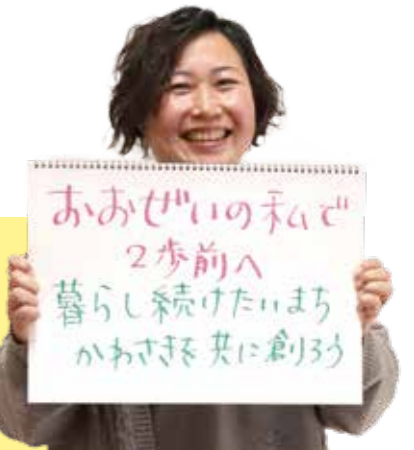 おおぜいの私で
2歩前へ
暮らし続けたいまち
かわさきを共に創ろう